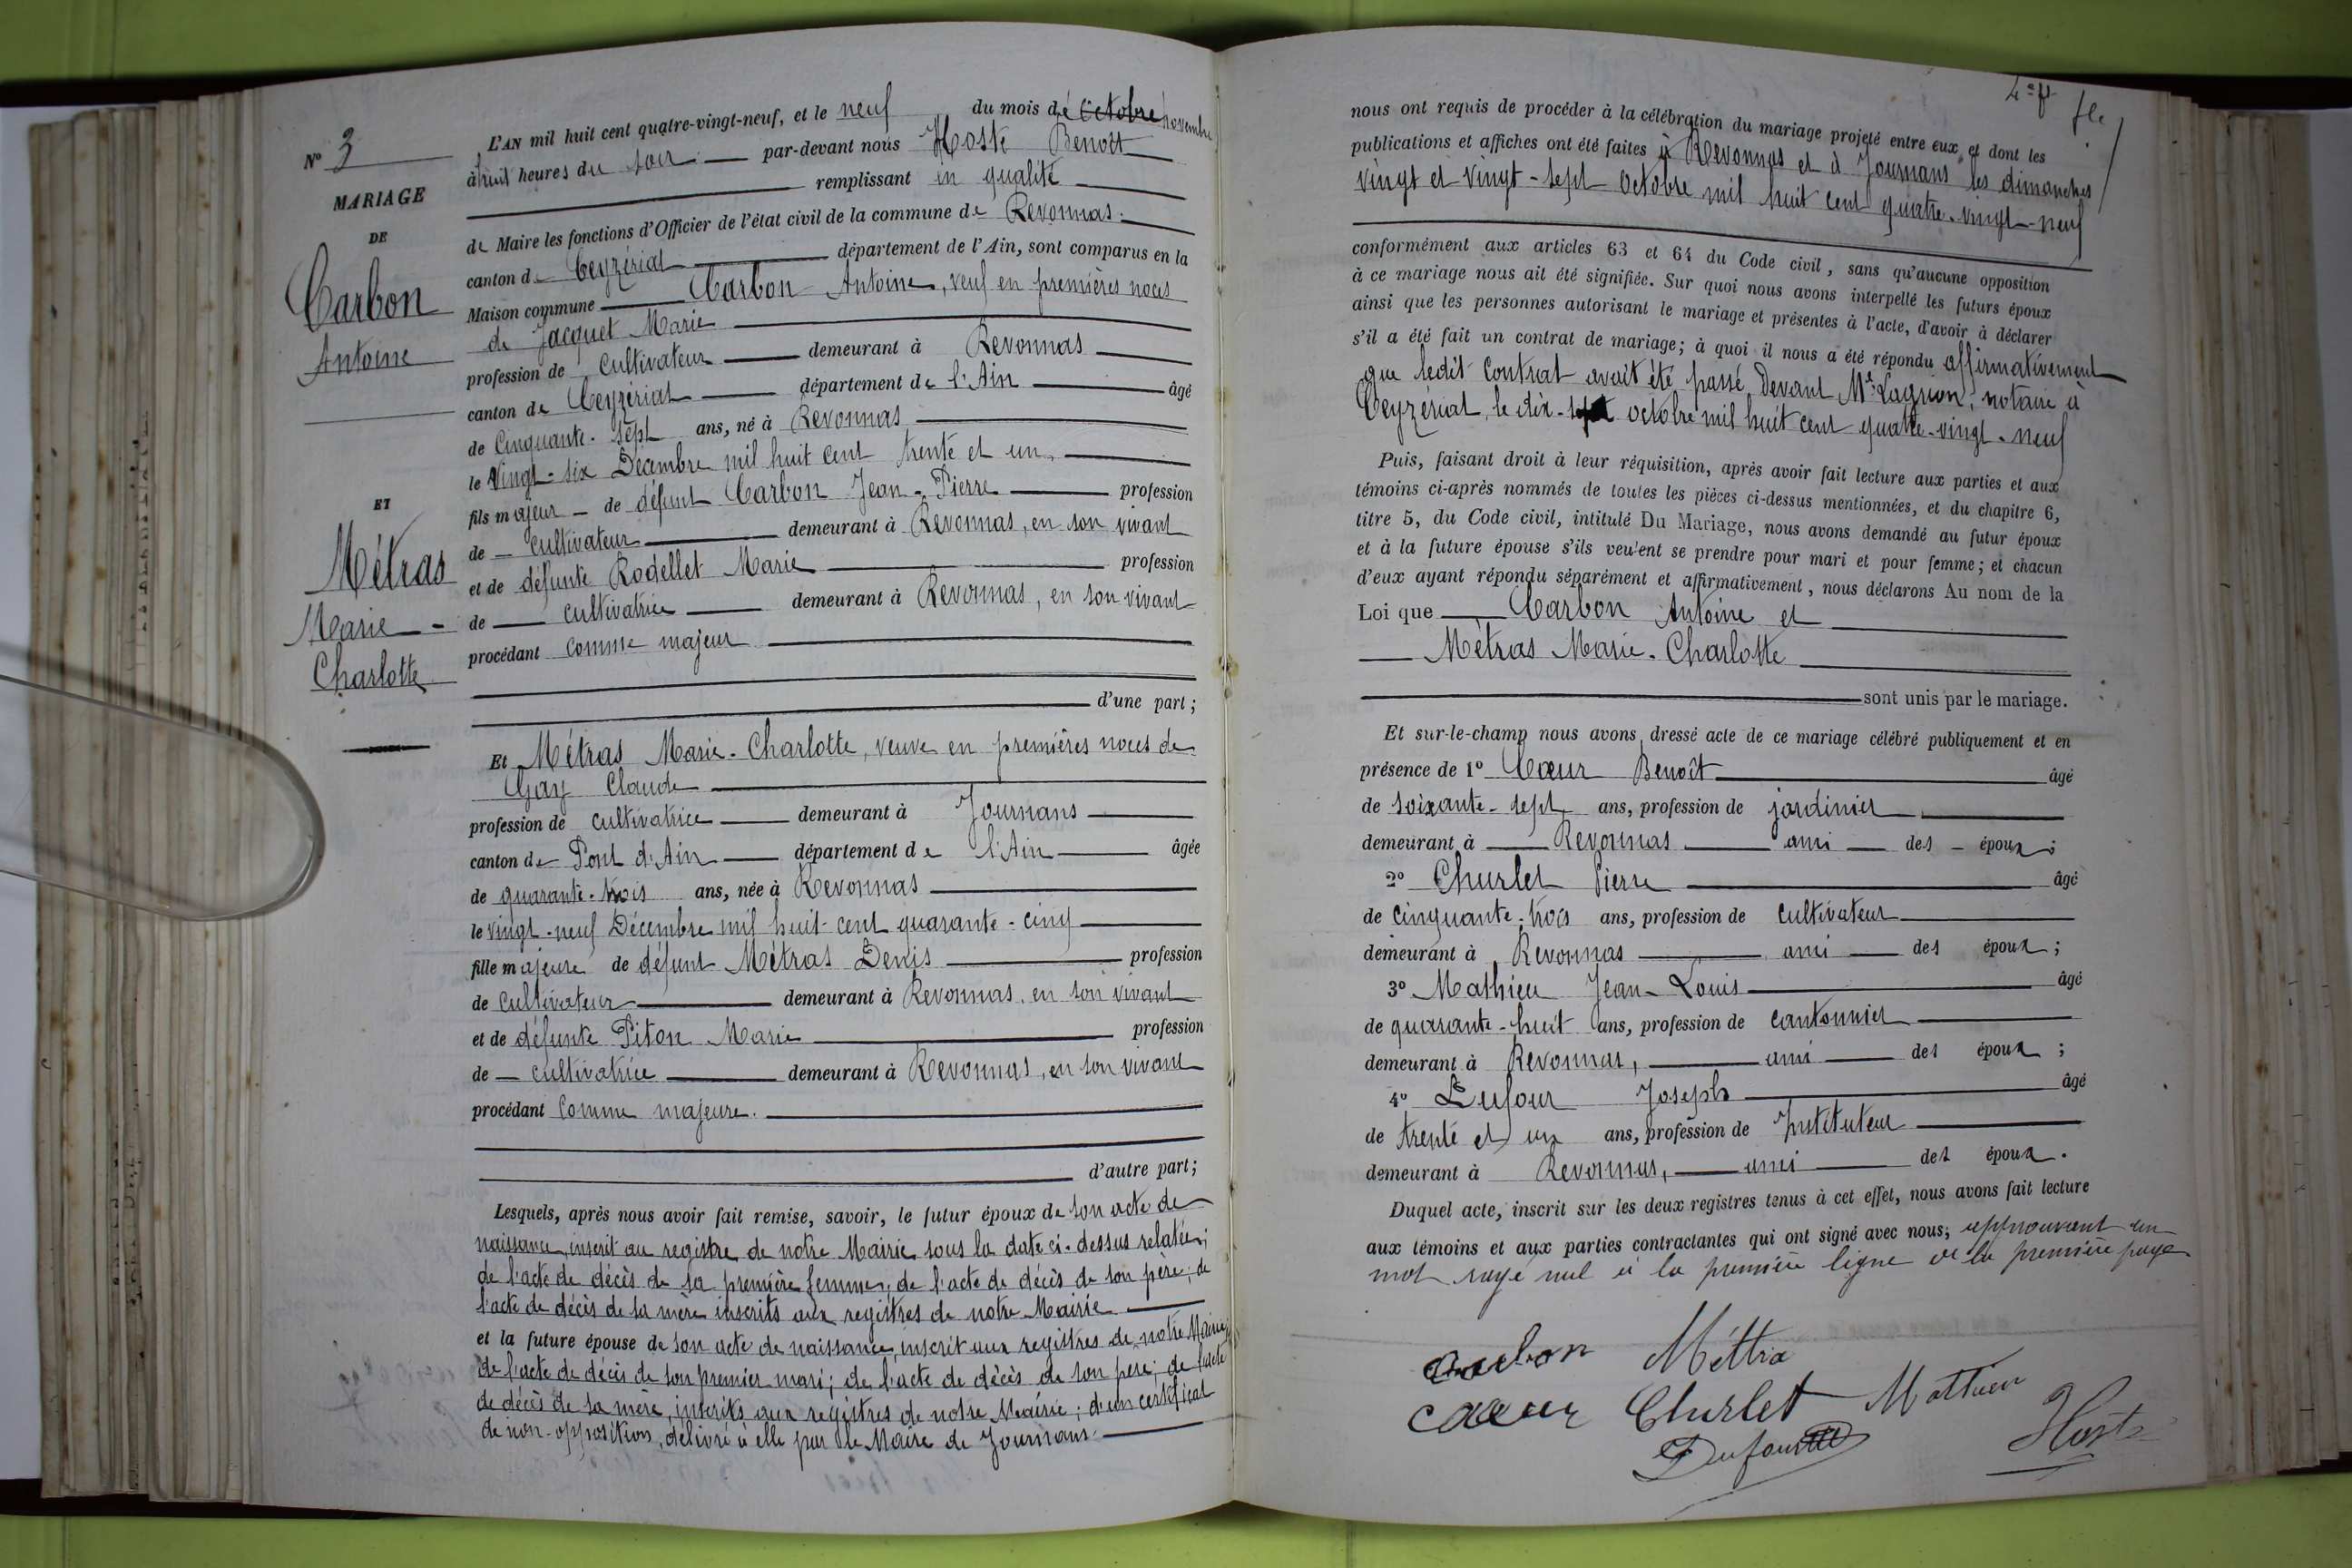 N° 3
MARIAGE
DE
Carbon
Antoine
ET
Métras
Marie -
Charlotte
L'AN mil huit cent quatre-vingt-neuf, et le neuf du mois de Octobre novembre
à huit heures du soir par-devant nous Hoste Benoît
remplissant en qualité
de Maire les fonctions d'Officier de l'état civil de la commune de Revonnas.
canton de Ceyzériat département de l'Ain, sont comparus en la
Maison commune Carbon Antoine, veuf en premières noces
de Jacquet Marie
profession de cultivateur demeurant à Revonnas
canton de Ceyzériat département de l'Ain âgé
de Cinquante-sept ans, né à Revonnas
le Vingt-six Décembre mil huit cent trente et un,
fils majeur de défunt Carbon Jean-Pierre profession
de cultivateur demeurant à Revonnas, en son vivant
et de défunte Rodellet Marie profession
de cultivatrice demeurant à Revonnas, en son vivant
procédant comme majeur
d'une part ;
Et Métras Marie-Charlotte, veuve en premières noces de
Gay Claude
profession de cultivatrice demeurant à Journans
canton de Pont d'Ain département de l'Ain âgée
de quarante-trois ans, née à Revonnas
le vingt-neuf Décembre mil huit-cent quarante-cinq
fille majeure de défunt Métras Denis profession
de cultivateur demeurant à Revonnas, en son vivant
et de défunte Piton Marie profession
de cultivatrice demeurant à Revonnas, en son vivant
procédant comme majeure.
d'autre part ;
Lesquels, après nous avoir fait remise, savoir, le futur époux de son acte de
naissance, inscrit au registre de notre Mairie sous la date ci-dessus relatée;
de l'acte de décès de sa première femme; de l'acte de décès de son père; de
l'acte de décès de sa mère inscrits aux registres de notre Mairie
et la future épouse de son acte de naissance, inscrit aux registres de notre Mairie;
de l'acte de décès de son premier mari; de l'acte de décès de son père; de l'acte
de décès de sa mère, inscrits aux registres de notre Mairie; d'un certificat
de non-opposition, délivré à elle par le Maire de Journans.
nous ont requis de procéder à la célébration du mariage projeté entre eux, et dont les
publications et affiches ont été faites à Revonnas et à Journans les dimanches
vingt et vingt-sept octobre mil huit cent quatre-vingt-neuf
conformément aux articles 63 et 64 du Code civil, sans qu'aucune opposition
à ce mariage nous ait été signifiée. Sur quoi nous avons interpellé les futurs époux
ainsi que les personnes autorisant le mariage et présentes à l'acte, d'avoir à déclarer
s'il a été fait un contrat de mariage ; à quoi il nous a été répondu affirmativement
que ledit contrat avait été passé devant Me Lagrion, notaire à
Ceyzériat, le dix-sept octobre mil huit cent quatre-vingt-neuf
Puis, faisant droit à leur réquisition, après avoir fait lecture aux parties et aux
témoins ci-après nommés de toutes les pièces ci-dessus mentionnées, et du chapitre 6,
titre 5, du Code civil, intitulé Du Mariage, nous avons demandé au futur époux
et à la future épouse s'ils veulent se prendre pour mari et pour femme ; et chacun
d'eux ayant répondu séparément et affirmativement, nous déclarons Au nom de la
Loi que Carbon Antoine et
Métras Marie-Charlotte
sont unis par le mariage.
Et sur-le-champ nous avons dressé acte de ce mariage célébré publiquement et en
présence de 1° Cœur Benoît âgé
de soixante-sept ans, profession de jardinier
demeurant à Revonnas ami des époux ;
2° Churlet Pierre âgé
de cinquante-trois ans, profession de cultivateur
demeurant à Revonnas ami des époux ;
3° Mathieu Jean-Louis âgé
de quarante-huit ans, profession de cantonnier
demeurant à Revonnas, ami des époux ;
4° Dufour Joseph âgé
de trente et un ans, profession de Instituteur
demeurant à Revonnas, ami des époux.
Duquel acte, inscrit sur les deux registres tenus à cet effet, nous avons fait lecture
aux témoins et aux parties contractantes qui ont signé avec nous, approuvant un
mot rayé nul à la première ligne de la première page
Carbon Méttra
Cœur Churlet Mathieu
Dufour Hoste